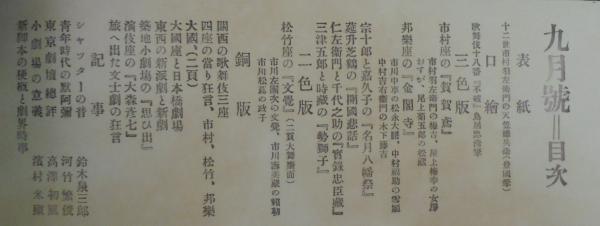 九月號=目次
表紙
十二世市村羽左衛門の天竺德兵衛(發國筆)
口繪
歌舞伎十八番『不破』鳥居忠清筆
三色版
市村座の『賀鳶』
市村羽左衛門の梅吉、尾上梅幸の女房
おすが、尾上菊五郎の松藏
邦樂座の『金閣寺』
市川中車の松永大膳、中村福助の雪姬
中村吉右衛門の木下藤吉
二色版
宗十郎と嘉久子の『名月八幡祭』
莚升芝鶴の『開國悲話』
仁左衛門と千代之助の『實錄忠臣藏』
三津五郎と時藏の『勢獅子』
松竹座の『文覺』(二頁大舞臺面)
市川左團次の文覺、市川壽美藏の賴朝
市川松蔦の妙子
銅版
關西の歌舞伎三座
四座の當り狂言、市村、松竹、邦樂
大國、(二頁)
大國座と日本橋劇場
東西の新派劇と新劇
築地小劇場の『思ひ出』
演伎座の『大森彦七』
旅へ出た文士劇の狂言
記事
シャッターの音 鈴木泉三郎
青年時代の默阿彌 河竹繁俊
東京劇壇總評 高澤初風
小劇場の意義 濱村米藏
新脚本の梗概と劇界時事